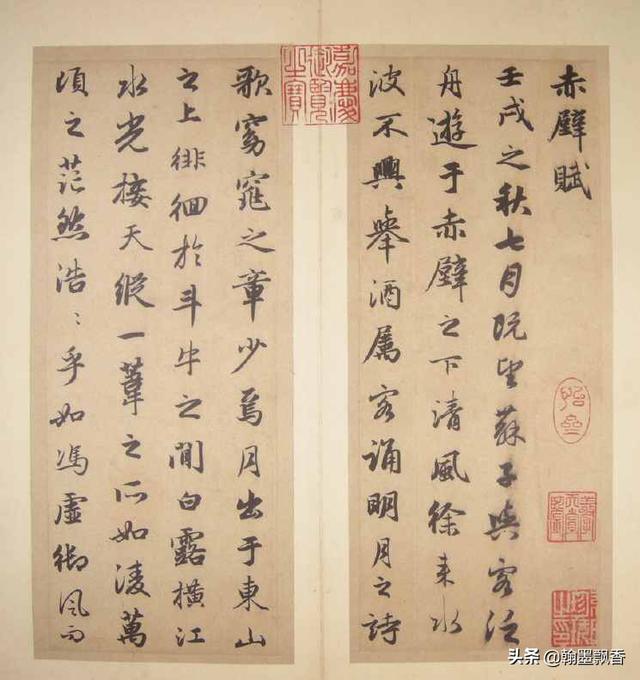 赤壁賦
壬戌之秋七月既望蘇子與客泛
舟遊于赤壁之下清風徐来水
波不興舉酒属客誦明月之詩
歌窈窕之章少焉月出于東山
之上徘徊於斗牛之間白露橫江
水光接天縱一葦之所如凌萬
頃之茫然浩〻乎如馮虛御風而
嘉慶御覽之寶
头条 @翰墨飘香